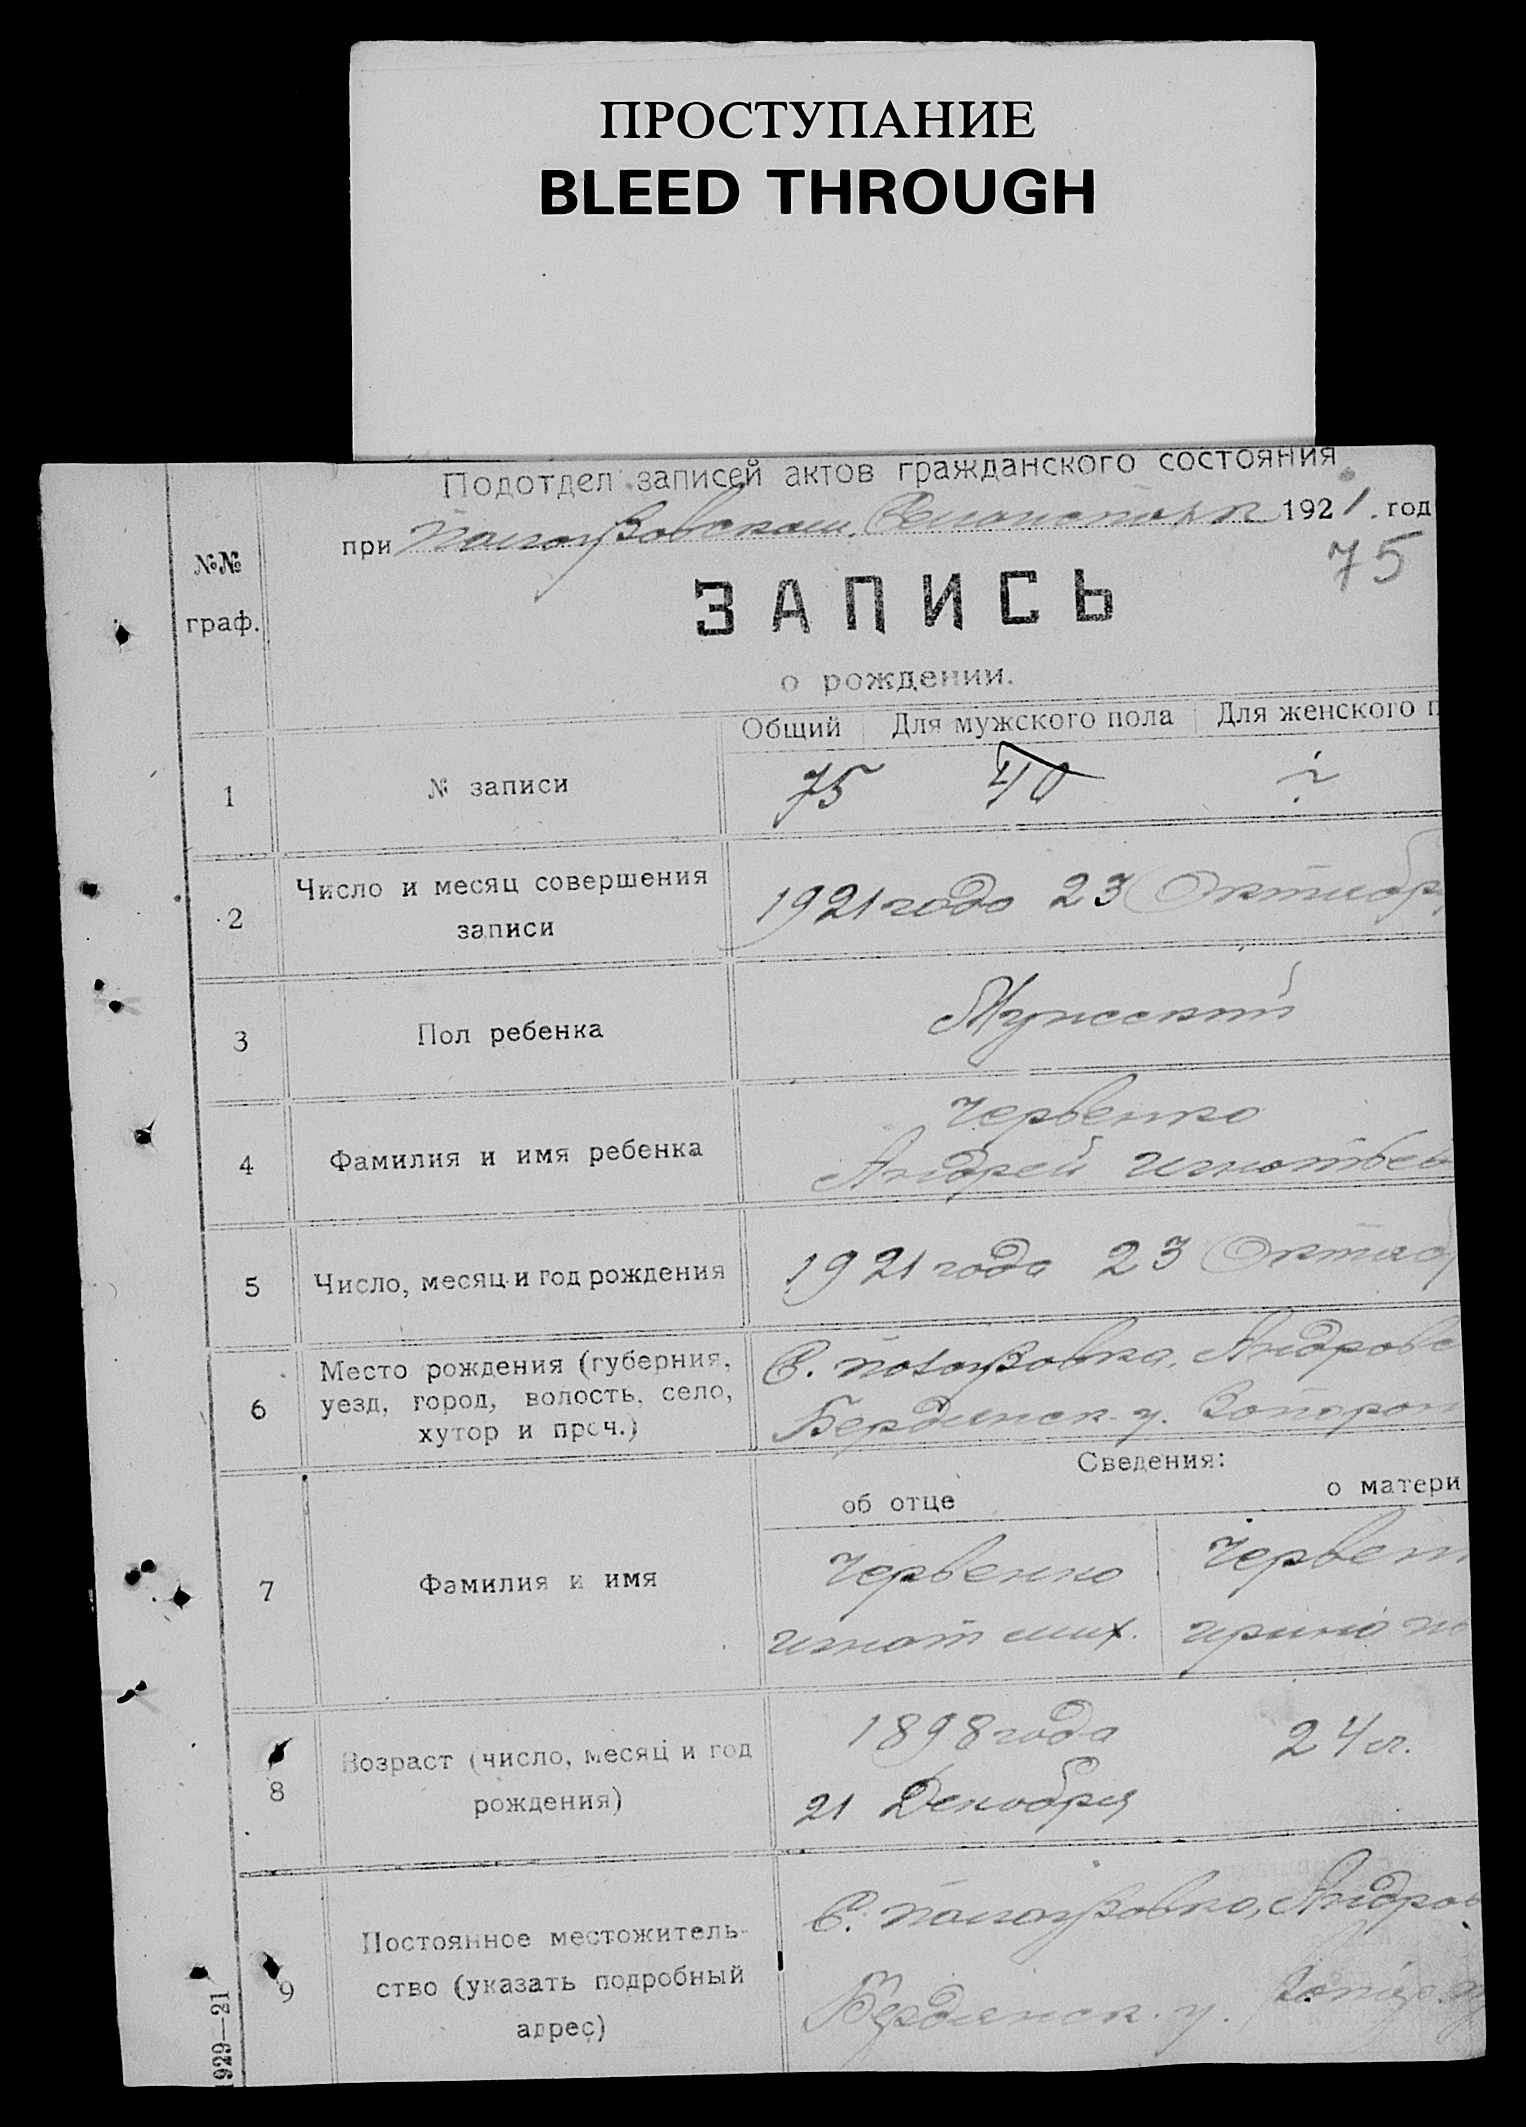 ПРОСТУПАНИЕ
BLEED THROUGH
Подотдел записей актов гражданского состояния
при 1921. год
75
№№
граф.
ЗАПИСЬ
о рождении.
Общий Для мужского пола Для женского п
1 № записи 75 40
2 Число и месяц совершения
записи
1921 года 23 Октябр
3 Пол ребенка Мужеский
4 Фамилия и имя ребенка
Червенко
Андрей
5 Число, месяц и год рождения 1921 года 23 Октяб
6 Место рождения (губерния,
уезд, город, волость, село,
хутор и проч.)
С. Андров
Бердянск. у.
Сведения:
об отце о матери
7 Фамилия и имя
Червенко Червен
Игнат Мих. Ирина
8 Возраст (число, месяц и год
рождения)
1898 года 24 л.
21 Декабря
9 Постоянное местожитель-
ство (указать подробный
адрес)
С. Андров
Бердянск. у.
1929—21